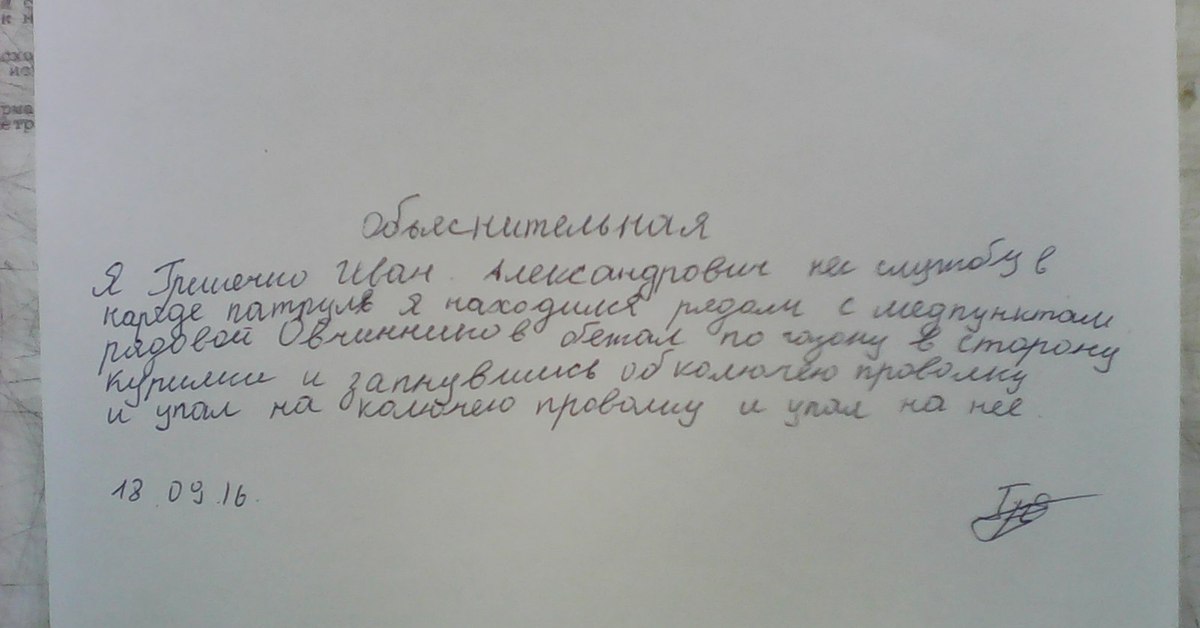 Объяснительная
Я Гришечко Иван. Александрович нес службу в
наряде патруль я находился рядом с медпунктом
рядовой Овчинников бежал по газону в сторону
курилки и запнувшись об колючею проволку
и упал на колючею проволку и упал на нее.
18.09.16.